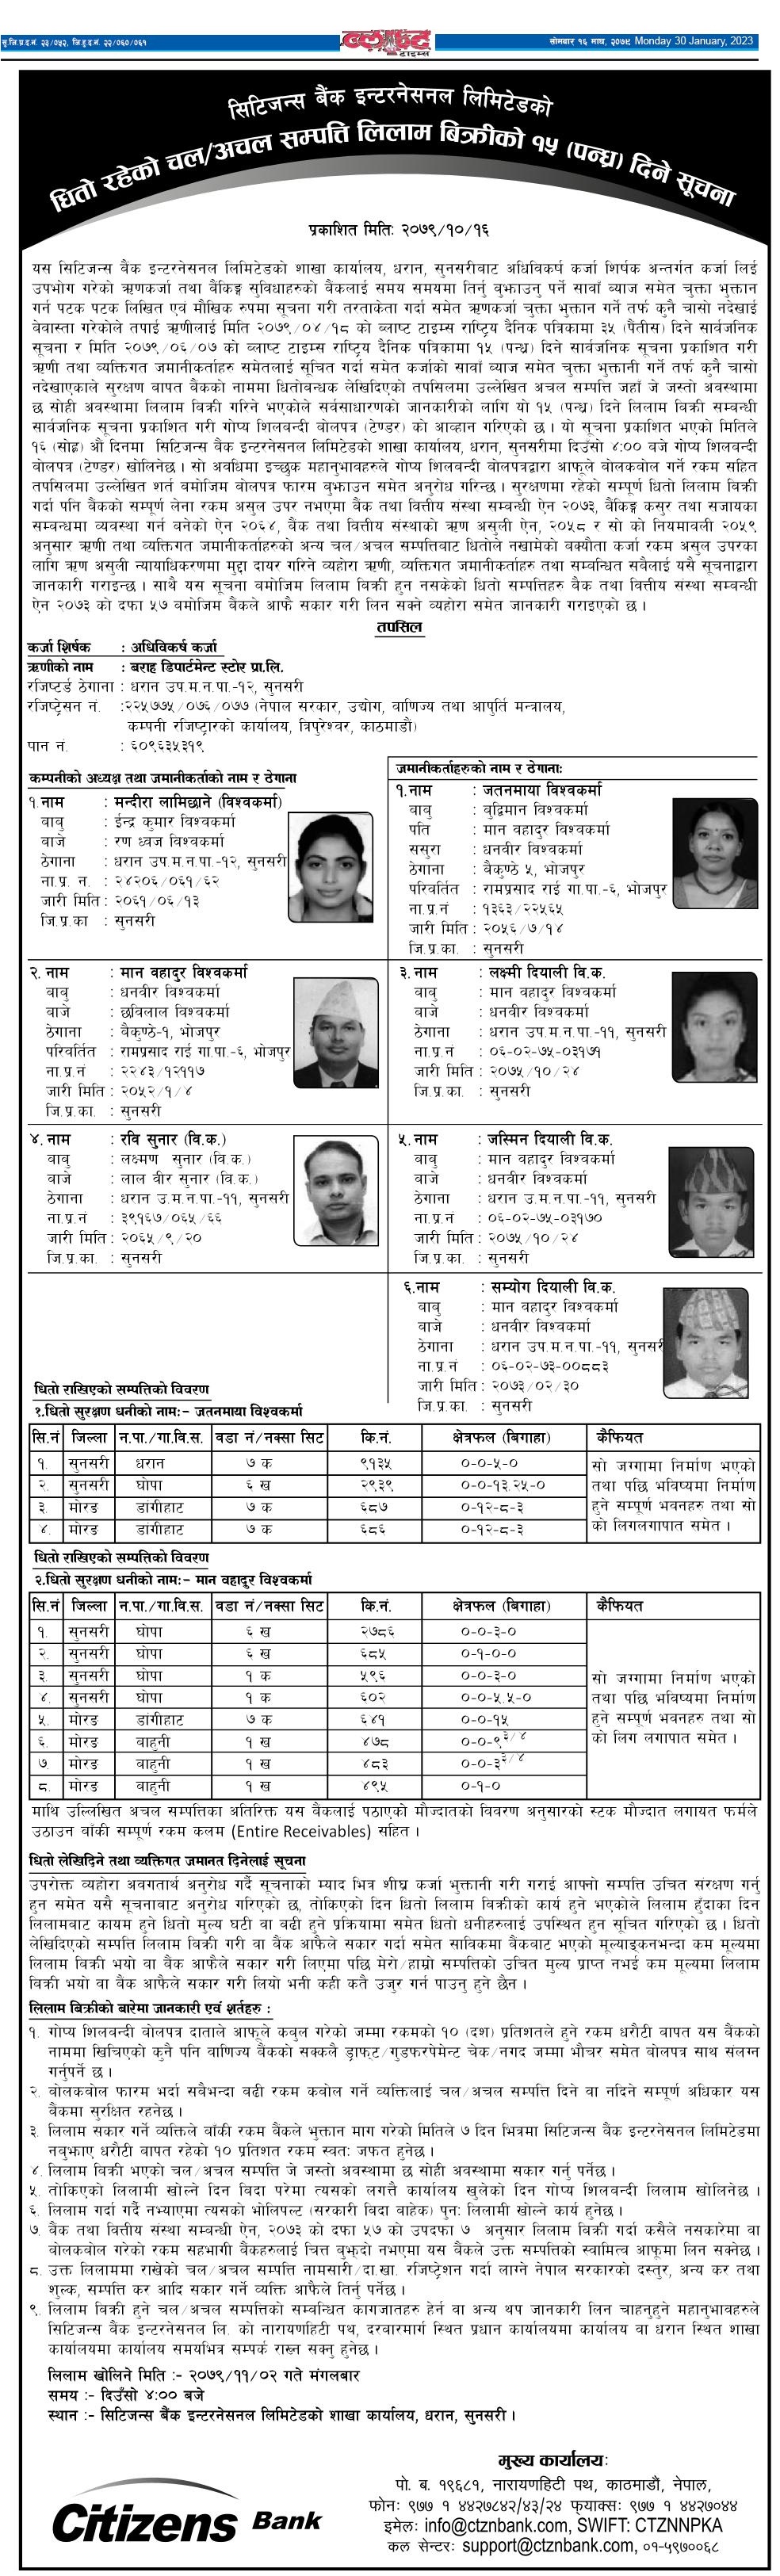 सु.जि.प्र.द.नं. २३/०५२, जि.हु.द.नं. २२/०६०/०६१
ब्लाष्ट
टाइम्स
सोमबार १६ माघ, २०७९ Monday 30 January, 2023
सिटिजन्स बैंक इन्टरनेसनल लिमिटेडको
धितो रहेको चल/अचल सम्पत्ति लिलाम बिक्रीको १५ (पन्ध्र) दिने सूचना
प्रकाशित मितिः २०७९/१०/१६
यस सिटिजन्स बैंक इन्टरनेसनल लिमिटेडको शाखा कार्यालय, धरान, सुनसरीबाट अधिविकर्ष कर्जा शिर्षक अन्तर्गत कर्जा लिई
उपभोग गरेको ऋणकर्जा तथा बैंकिङ्ग सुविधाहरुको बैंकलाई समय समयमा तिर्नु बुझाउनु पर्ने सावाँ व्याज समेत चुक्ता भुक्तान
गर्न पटक पटक लिखित एवं मौखिक रुपमा सूचना गरी तरताकेता गर्दा समेत ऋणकर्जा चुक्ता भुक्तान गर्ने तर्फ कुनै चासो नदेखाई
बेवास्ता गरेकोले तपाई ऋणीलाई मिति २०७९/०४/१८ को ब्लाष्ट टाइम्स राष्ट्रिय दैनिक पत्रिकामा ३५ (पैंतीस) दिने सार्वजनिक
सूचना र मिति २०७९/०६/०७ को ब्लाष्ट टाइम्स राष्ट्रिय दैनिक पत्रिकामा १५ (पन्ध्र) दिने सार्वजनिक सूचना प्रकाशित गरी
ऋणी तथा व्यक्तिगत जमानीकर्ताहरु समेतलाई सूचित गर्दा समेत कर्जाको सावाँ व्याज समेत चुक्ता भुक्तानी गर्ने तर्फ कुनै चासो
नदेखाएकाले सुरक्षण वापत बैंकको नाममा धितोवन्धक लेखिदिएको तपसिलमा उल्लेखित अचल सम्पत्ति जहाँ जे जस्तो अवस्थामा
छ सोही अवस्थामा लिलाम विक्री गरिने भएकोले सर्वसाधारणको जानकारीको लागि यो १५ (पन्ध्र) दिने लिलाम विक्री सम्वन्धी
सार्वजनिक सूचना प्रकाशित गरी गोप्य शिलवन्दी बोलपत्र (टेण्डर) को आव्हान गरिएको छ । यो सूचना प्रकाशित भएको मितिले
१६ (सोह्र) औं दिनमा सिटिजन्स बैंक इन्टरनेसनल लिमिटेडको शाखा कार्यालय, धरान, सुनसरीमा दिउँसो ४:०० बजे गोप्य शिलवन्दी
बोलपत्र (टेण्डर) खोलिनेछ । सो अवधिमा इच्छुक महानुभावहरुले गोप्य शिलवन्दी बोलपत्रद्वारा आफूले बोलकबोल गर्ने रकम सहित
तपसिलमा उल्लेखित शर्त वमोजिम बोलपत्र फारम बुझाउन समेत अनुरोध गरिन्छ । सुरक्षणमा रहेको सम्पूर्ण धितो लिलाम विक्री
गर्दा पनि बैंकको सम्पूर्ण लेना रकम असुल उपर नभएमा बैंक तथा वित्तीय संस्था सम्वन्धी ऐन २०७३, बैंकिङ्ग कसुर तथा सजायका
सम्वन्धमा व्यवस्था गर्न बनेको ऐन २०६४, बैंक तथा वित्तीय संस्थाको ऋण असुली ऐन, २०५८ र सो को नियमावली २०५९
अनुसार ऋणी तथा व्यक्तिगत जमानीकर्ताहरुको अन्य चल/अचल सम्पत्तिबाट धितोले नखामेको वक्यौता कर्जा रकम असुल उपरका
लागि ऋण असुली न्यायाधिकरणमा मुद्दा दायर गरिने व्यहोरा ऋणी, व्यक्तिगत जमानीकर्ताहरु तथा सम्वन्धित सवैलाई यसै सूचनाद्वारा
जानकारी गराइन्छ । साथै यस सूचना वमोजिम लिलाम विक्री हुन नसकेको धितो सम्पत्तिहरु बैंक तथा वित्तीय संस्था सम्वन्धी
ऐन २०७३ को दफा ५७ वमोजिम बैंकले आफै सकार गरी लिन सक्ने व्यहोरा समेत जानकारी गराइएको छ ।
तपसिल
कर्जा शिर्षक : अधिविकर्ष कर्जा
ऋणीको नाम : बराह डिपार्टमेन्ट स्टोर प्रा.लि.
रजिष्टर्ड ठेगाना : धरान उप.म.न.पा.-१२, सुनसरी
रजिष्ट्रेसन नं. :२२५७७५/०७६/०७७ (नेपाल सरकार, उद्योग, वाणिज्य तथा आपुर्ति मन्त्रालय,
कम्पनी रजिष्ट्रारको कार्यालय, त्रिपुरेश्वर, काठमाडौं)
पान नं. : ६०९६३५३१९
कम्पनीको अध्यक्ष तथा जमानीकर्ताको नाम र ठेगाना
१.नाम : मन्दीरा लामिछाने (विश्वकर्मा)
बाबु : ईन्द्र कुमार विश्वकर्मा
बाजे : रण ध्वज विश्वकर्मा
ठेगाना : धरान उप.म.न.पा.-१२, सुनसरी
ना.प्र. न. : २४२०६/०६१/६२
जारी मिति : २०६१/०६/१३
जि.प्र.का : सुनसरी
जमानीकर्ताहरुको नाम र ठेगानाः
१.नाम : जतनमाया विश्वकर्मा
बाबु : वुद्धिमान विश्वकर्मा
पति : मान वहादुर विश्वकर्मा
ससुरा : धनवीर विश्वकर्मा
ठेगाना : वैकुण्ठे ५, भोजपुर
परिवर्तित : रामप्रसाद राई गा.पा.-६, भोजपुर
ना.प्र.नं : १३६३/२२५६५
जारी मिति : २०५६/७/१४
जि.प्र.का. : सुनसरी
२. नाम : मान वहादुर विश्वकर्मा
बाबु : धनवीर विश्वकर्मा
बाजे : छविलाल विश्वकर्मा
ठेगाना : वैकुण्ठे-१, भोजपुर
परिवर्तित : रामप्रसाद राई गा.पा.-६, भोजपुर
ना.प्र.नं : २२४३/१२११७
जारी मिति : २०५२/१/४
जि.प्र.का. : सुनसरी
३. नाम : लक्ष्मी दियाली वि.क.
बाबु : मान वहादुर विश्वकर्मा
बाजे : धनवीर विश्वकर्मा
ठेगाना : धरान उप.म.न.पा.-११, सुनसरी
ना.प्र.नं : ०६-०२-७५-०३१७१
जारी मिति : २०७५/१०/२४
जि.प्र.का. : सुनसरी
४. नाम : रवि सुनार (वि.क.)
बाबु : लक्ष्मण सुनार (वि.क.)
बाजे : लाल वीर सुनार (वि.क.)
ठेगाना : धरान उ.म.न.पा.-११, सुनसरी
ना.प्र.नं : ३९१६७/०६५/६६
जारी मिति : २०६५/९/२०
जि.प्र.का. : सुनसरी
५. नाम : जस्मिन दियाली वि.क.
बाबु : मान वहादुर विश्वकर्मा
बाजे : धनवीर विश्वकर्मा
ठेगाना : धरान उ.म.न.पा.-११, सुनसरी
ना.प्र.नं : ०६-०२-७५-०३१७०
जारी मिति : २०७५/१०/२४
जि.प्र.का. : सुनसरी
६.नाम : सम्योग दियाली वि.क.
बाबु : मान वहादुर विश्वकर्मा
बाजे : धनवीर विश्वकर्मा
ठेगाना : धरान उप.म.न.पा.-११, सुनसरी
ना.प्र.नं : ०६-०२-७३-००८८३
जारी मिति : २०७३/०२/३०
जि.प्र.का. : सुनसरी
धितो राखिएको सम्पत्तिको विवरण
१.धितो सुरक्षण धनीको नामः- जतनमाया विश्वकर्मा
सि.नं जिल्ला न.पा./गा.वि.स. वडा नं/नक्सा सिट कि.नं. क्षेत्रफल (बिगाहा) कैफियत
१. सुनसरी धरान ७ क ९१३५ ०-०-५-० सो जग्गामा निर्माण भएको
२. सुनसरी घोपा ६ ख २९३९ ०-०-१३.२५-० तथा पछि भविष्यमा निर्माण
३. मोरङ डांगीहाट ७ क ६८७ ०-१२-८-३ हुने सम्पूर्ण भवनहरु तथा सो
४. मोरङ डांगीहाट ७ क ६८६ ०-१२-८-३ को लिगलगापात समेत ।
धितो राखिएको सम्पत्तिको विवरण
२.धितो सुरक्षण धनीको नामः- मान वहादुर विश्वकर्मा
सि.नं जिल्ला न.पा./गा.वि.स. वडा नं/नक्सा सिट कि.नं. क्षेत्रफल (बिगाहा) कैफियत
१. सुनसरी घोपा ६ ख २७८६ ०-०-३-०
२. सुनसरी घोपा ६ ख ६८५ ०-१-०-०
३. सुनसरी घोपा १ क ५९६ ०-०-३-० सो जग्गामा निर्माण भएको
४. सुनसरी घोपा १ क ६०२ ०-०-५.५-० तथा पछि भविष्यमा निर्माण
५. मोरङ डांगीहाट ७ क ६४१ ०-०-१५ हुने सम्पूर्ण भवनहरु तथा सो
६. मोरङ वाहुनी १ ख ४७८ ०-०-९३/४ को लिग लगापात समेत ।
७. मोरङ वाहुनी १ ख ४८३ ०-०-३३/४
८. मोरङ वाहुनी १ ख ४९५ ०-१-०
माथि उल्लिखित अचल सम्पत्तिका अतिरिक्त यस बैंकलाई पठाएको मौज्दातको विवरण अनुसारको स्टक मौज्दात लगायत फर्मले
उठाउन बाँकी सम्पूर्ण रकम कलम (Entire Receivables) सहित ।
धितो लेखिदिने तथा व्यक्तिगत जमानत दिनेलाई सूचना
उपरोक्त व्यहोरा अवगतार्थ अनुरोध गर्दै सूचनाको म्याद भित्र शीघ्र कर्जा भुक्तानी गरी गराई आफ्नो सम्पत्ति उचित संरक्षण गर्नु
हुन समेत यसै सूचनाबाट अनुरोध गरिएको छ, तोकिएको दिन धितो लिलाम विक्रीको कार्य हुने भएकोले लिलाम हुँदाका दिन
लिलामबाट कायम हुने धितो मुल्य घटी वा वढी हुने प्रक्रियामा समेत धितो धनीहरुलाई उपस्थित हुन सूचित गरिएको छ । धितो
लेखिदिएको सम्पत्ति लिलाम विक्री गरी वा बैंक आफैले सकार गर्दा समेत साविकमा बैंकबाट भएको मूल्याङ्कनभन्दा कम मूल्यमा
लिलाम विक्री भयो वा बैंक आफैले सकार गरी लिएमा पछि मेरो/हाम्रो सम्पत्तिको उचित मुल्य प्राप्त नभई कम मूल्यमा लिलाम
विक्री भयो वा बैंक आफैले सकार गरी लियो भनी कही कतै उजुर गर्न पाउनु हुने छैन ।
लिलाम बिक्रीको बारेमा जानकारी एवं शर्तहरु :
१. गोप्य शिलवन्दी बोलपत्र दाताले आफूले कबुल गरेको जम्मा रकमको १० (दश) प्रतिशतले हुने रकम धरौटी बापत यस बैंकको
नाममा खिचिएको कुनै पनि वाणिज्य बैंकको सक्कलै ड्राफ्ट/गुडफरपेमेन्ट चेक/नगद जम्मा भौचर समेत बोलपत्र साथ संलग्न
गर्नुपर्ने छ ।
२. बोलकबोल फारम भर्दा सवैभन्दा वढी रकम कबोल गर्ने व्यक्तिलाई चल/अचल सम्पत्ति दिने वा नदिने सम्पूर्ण अधिकार यस
बैंकमा सुरक्षित रहनेछ ।
३. लिलाम सकार गर्ने व्यक्तिले बाँकी रकम बैंकले भुक्तान माग गरेको मितिले ७ दिन भित्रमा सिटिजन्स बैंक इन्टरनेसनल लिमिटेडमा
नबुझाए धरौटी बापत रहेको १० प्रतिशत रकम स्वतः जफत हुनेछ ।
४. लिलाम विक्री भएको चल/अचल सम्पत्ति जे जस्तो अवस्थामा छ सोही अवस्थामा सकार गर्नु पर्नेछ ।
५. तोकिएको लिलामी खोल्ने दिन विदा परेमा त्यसको लगत्तै कार्यालय खुलेको दिन गोप्य शिलवन्दी लिलाम खोलिनेछ ।
६. लिलाम गर्दा गर्दै नभ्याएमा त्यसको भोलिपल्ट (सरकारी विदा वाहेक) पुनः लिलामी खोल्ने कार्य हुनेछ ।
७. बैंक तथा वित्तीय संस्था सम्वन्धी ऐन, २०७३ को दफा ५७ को उपदफा ७ अनुसार लिलाम विक्री गर्दा कसैले नसकारेमा वा
बोलकबोल गरेको रकम सहभागी बैंकहरुलाई चित्त बुझ्दो नभएमा यस बैंकले उक्त सम्पत्तिको स्वामित्व आफूमा लिन सक्नेछ ।
८. उक्त लिलाममा राखेको चल/अचल सम्पत्ति नामसारी/दा.खा. रजिष्ट्रेशन गर्दा लाग्ने नेपाल सरकारको दस्तुर, अन्य कर तथा
शुल्क, सम्पत्ति कर आदि सकार गर्ने व्यक्ति आफैले तिर्नु पर्नेछ ।
९. लिलाम विक्री हुने चल/अचल सम्पत्तिको सम्वन्धित कागजातहरु हेर्न वा अन्य थप जानकारी लिन चाहनुहुने महानुभावहरुले
सिटिजन्स बैंक इन्टरनेसनल लि. को नारायणहिटी पथ, दरवारमार्ग स्थित प्रधान कार्यालयमा कार्यालय वा धरान स्थित शाखा
कार्यालयमा कार्यालय समयभित्र सम्पर्क राख्न सक्नु हुनेछ ।
लिलाम खोलिने मिति :- २०७९/११/०२ गते मंगलबार
समय :- दिउँसो ४:०० बजे
स्थान :- सिटिजन्स बैंक इन्टरनेसनल लिमिटेडको शाखा कार्यालय, धरान, सुनसरी ।
Citizens Bank
मुख्य कार्यालयः
पो. ब. १९६८१, नारायणहिटी पथ, काठमाडौं, नेपाल,
फोनः ९७७ १ ४४२७८४२/४३/२४ फ्याक्सः ९७७ १ ४४२७०४४
इमेलः info@ctznbank.com, SWIFT: CTZNNPKA
कल सेन्टरः support@ctznbank.com, ०१-५९७००६८